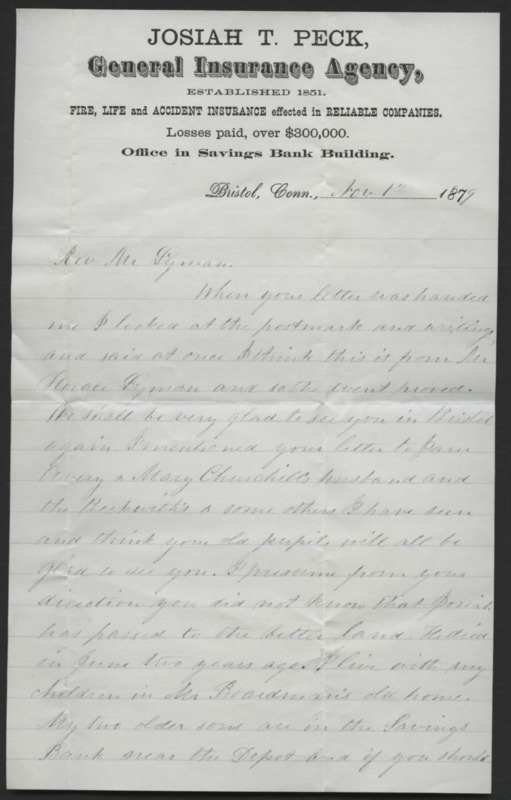 JOSIAH T. PECK,
General Insurance Agency,
ESTABLISHED 1851.
FIRE, LIFE and ACCIDENT INSURANCE effected in RELIABLE COMPANIES.
Losses paid, over $300,000.
Office in Savings Bank Building.
Bristol, Conn., Nov 1st 1879
Rev Mr Lyman.
When your letter was handed
me I looked at the postmark and writing
and said at once I think this is from
Horace Lyman and so the event proved.
We shall be very glad to see you in Bristol
again. I mentioned your letter to
Avery & Mary Churchill's husband and
the Beckwith's & some others I have seen
and think your old pupils will all be
glad to see you. I presume from your
direction you did not know that Josiah
has passed to the better land. He died
in June two years ago. I live with my
children in Mr Boardman's old home.
My two older sons are in the Savings
Bank near the Depot and if you should